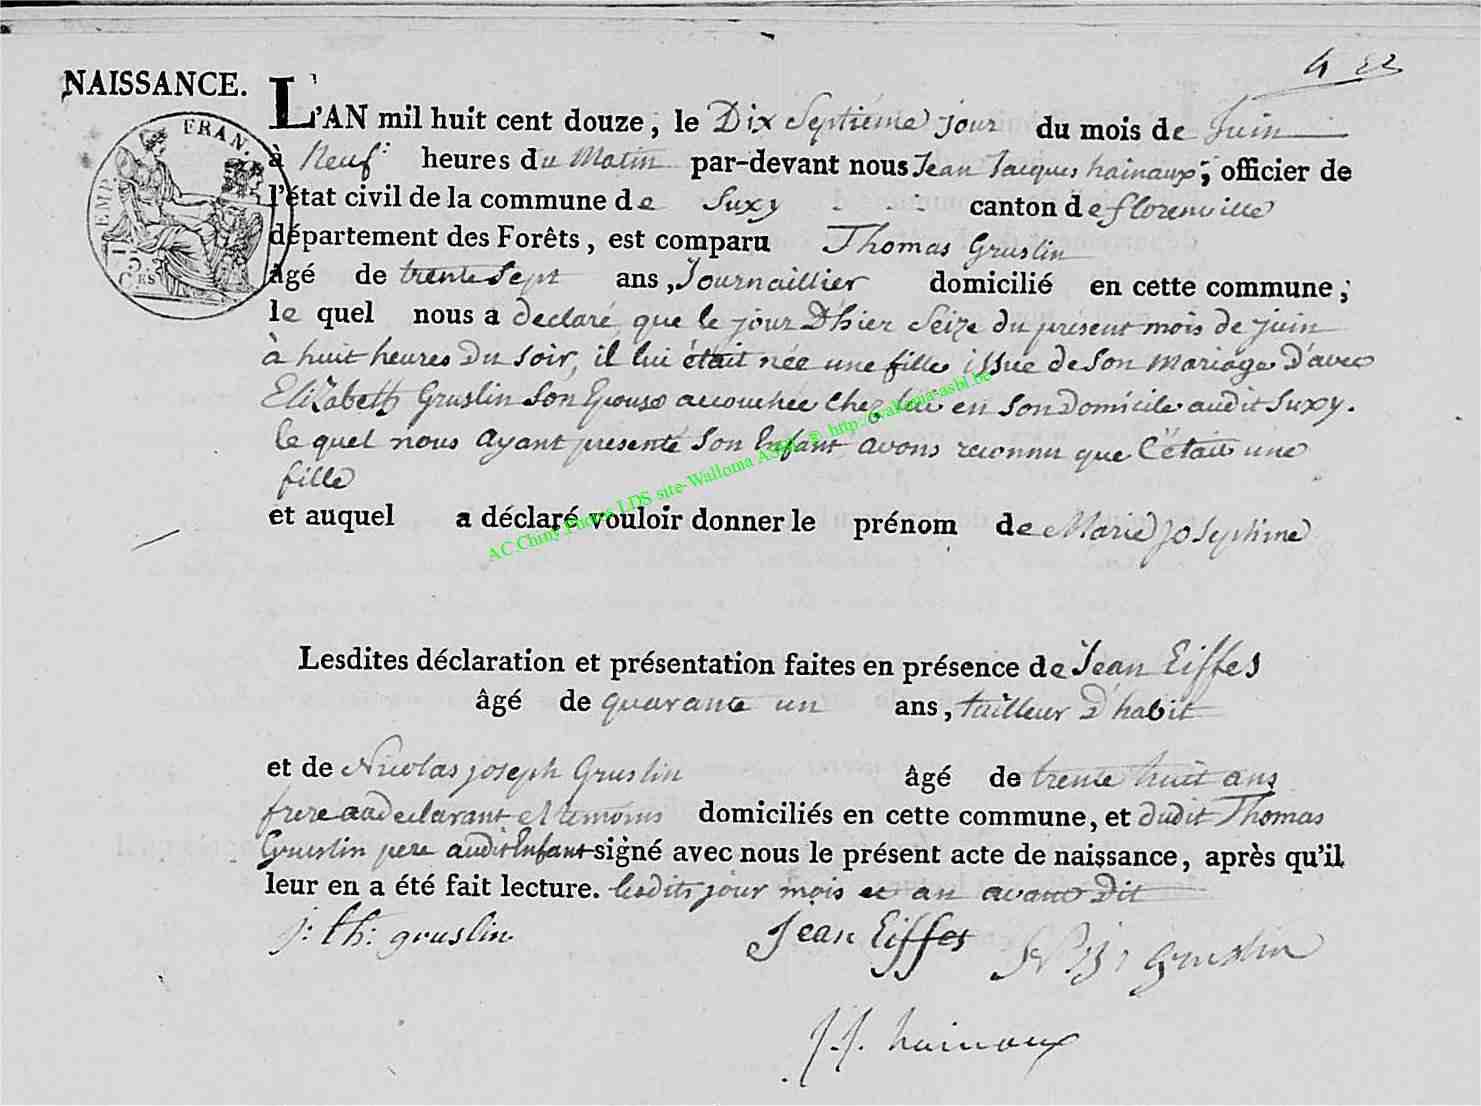 NAISSANCE.
L'AN mil huit cent douze, le Dix Septiéme jour du mois de Juin
à Neuf heures du Matin par-devant nous Jean Jacques hainaux; officier de
l'état civil de la commune de Suxy canton de florenville
département des Forêts, est comparu Thomas Gruslin
âgé de trente Sept ans, Journaillier domicilié en cette commune;
le quel nous a declaré que le jour D'hier Seize du présent mois de juin
à huit heures Du Soir, il lui était née une fille issue de Son Mariage D'avec
Elizabeth Gruslin Son Epouse accouchée chez lui en Son Domicile audit Suxy.
le quel nous ayant présenté Son Enfant avons reconnu que C'était une
fille
et auquel a déclaré vouloir donner le prénom de Marie josephine
Lesdites déclaration et présentation faites en présence de Jean Eiffes
âgé de quarante un ans, tailleur D'habit
et de Nicolas joseph Gruslin âgé de trente huit ans
frere au declarant et temoins domiciliés en cette commune, et dudit Thomas
Gruslin pere audit Enfant signé avec nous le présent acte de naissance, après qu'il
leur en a été fait lecture. lesdits jour mois et an avant Dit
j: th: gruslin. Jean Eiffes N j: gruslin
J.J. hainaux
EMP. FRAN.
AC Chiny Photos LDS site-Wallonia ASBL © http://wallonia-asbl.be